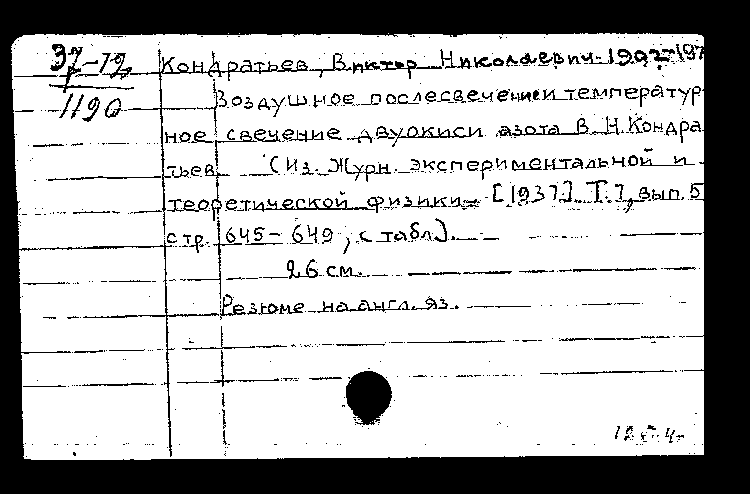 37-12
1190
Кондратьев, Виктор Николаевич. 1902-197
Воздушное послесвечение и температур-
ное свечение двуокиси азота В. Н. Кондра
тьев (Из. Журн. экспериментальной и
теоретической физики [1937]. Т. 7, вып. 5
стр. 645-649, с табл).
26 см.
Резюме на англ. яз.